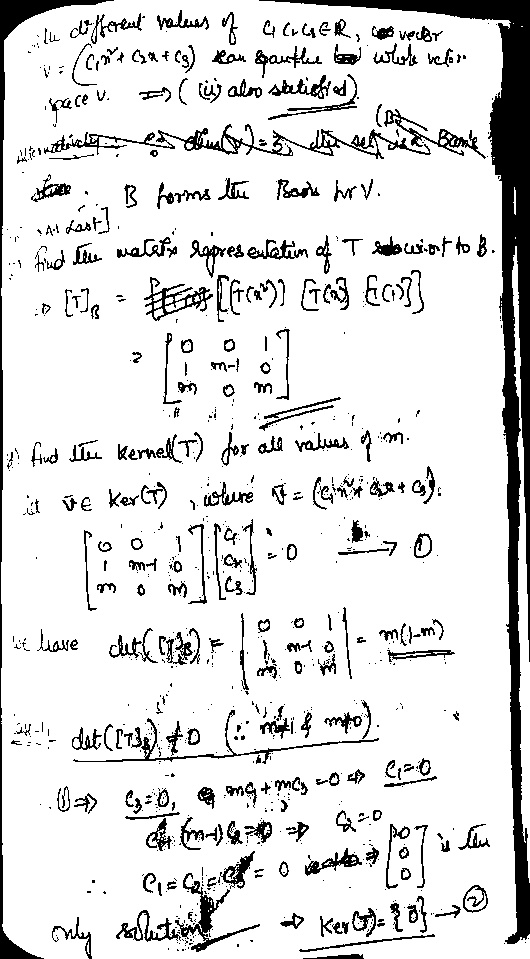 different values of C₁ C₂ C₃ ∈ ℝ, vector
v = (C₁x² + C₂x + C₃) can span the whole vector
space V. ⇒ (ii) also satisfied)
Alternatively dim(V) = 3, the set is a Basis
B forms the Basis for V.
Last].
find the matrix representation of T to B.
⇒ [T]_B = [[T(x²)] [T(x)] [T(1)]]
= [0 0 1
1 m-1 0
m 0 m]
find the kernel(T) for all values of m.
let v̄ ∈ Ker(T), where v̄ = (C₁x² + C₂x + C₃).
[0 0 1
1 m-1 0
m 0 m] [C₁
C₂
C₃] = 0 → ①
we have det([T]_B) = |0 0 1
1 m-1 0
m 0 m| = m(1-m)
det([T]_B) ≠ 0 (∵ m≠1 & m≠0).
① ⇒ C₃=0, mC₁ + mC₃ = 0 ⇒ C₁=0
C₁+ (m-1)C₂ = 0 ⇒ C₂=0
∴ C₁ = C₂ = C₃ = 0 ⇒ [0
0
0] is the
only solution ⇒ Ker(T) = {0̄} → ②